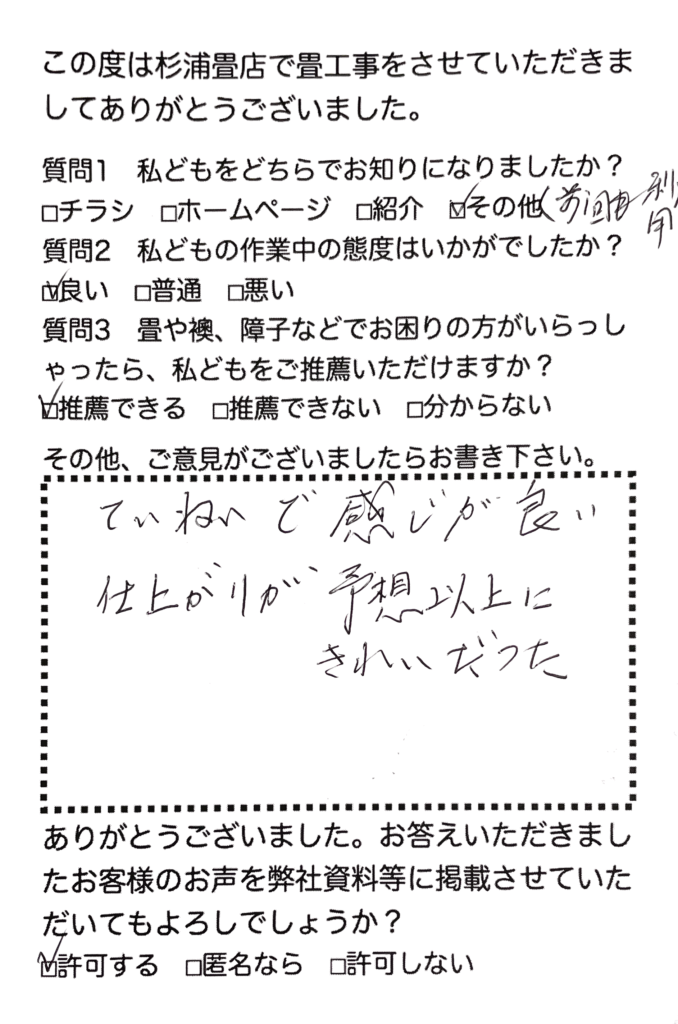 この度は杉浦畳店で畳工事をさせていただきま
してありがとうございました。
質問1　私どもをどちらでお知りになりましたか？
□チラシ　□ホームページ　□紹介　☑その他(前回も利用
質問2　私どもの作業中の態度はいかがでしたか？
☑良い　□普通　□悪い
質問3　畳や襖、障子などでお困りの方がいらっし
ゃったら、私どもをご推薦いただけますか？
☑推薦できる　□推薦できない　□分からない
その他、ご意見がございましたらお書き下さい。
ていねいで感じが良い
仕上がりが予想以上に
きれいだった
ありがとうございました。お答えいただきまし
たお客様のお声を弊社資料等に掲載させていた
だいてもよろしでしょうか？
☑許可する　□匿名なら　□許可しない